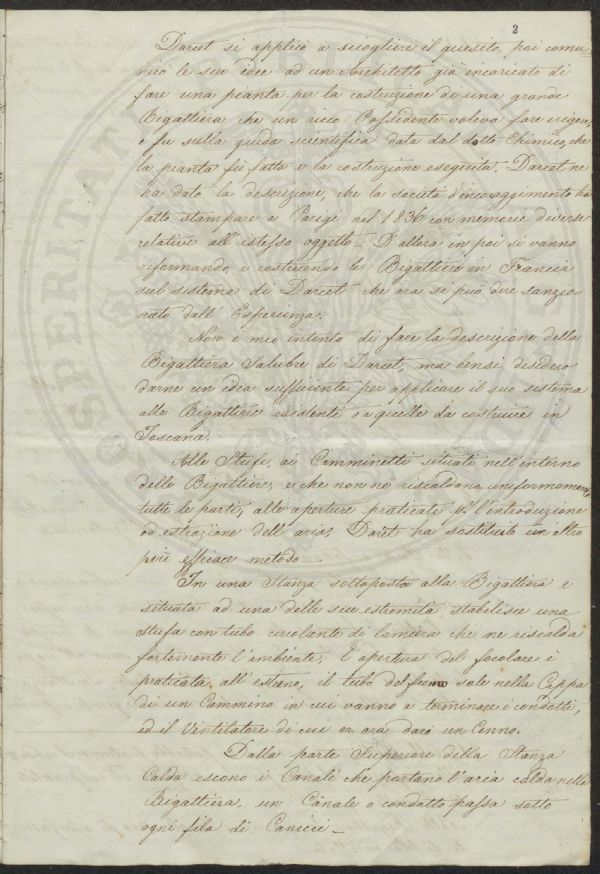 2
Darcet si applicò a sciogliere il quesito, poi comu
nicò le sue idee ad un Architetto già incaricato di
fare una pianta per la costruzione di una grande
Bigattiera che un ricco Possidente voleva fare erigere,
e fu sulla guida scientifica data dal dotto Chimico, che
la pianta fù fatta e la costruzione eseguita. Darcet ne
ha dato la descrizione, che la società d'incoraggimento ha
fatto stampare a Parigi nel 1836 con memorie diverse
relative all'istesso oggetto. D'allora in poi si vanno
riformando, e costruendo le Bigattiere in Francia
sul sistema di Darcet che ora si può dire sanzio-
nato dall'Esperienza.
Non è mio intento di fare la descrizione della
Bigattiera Salubre di Darcet, ma bensì desidero
darne un idea sufficiente per applicare il suo sistema
alle Bigattiere esistenti o a quelle da costruire in
Toscana.
Alle Stufe, ai Camminetti situati nell'interno
delle Bigattiere, e che non ne riscaldano uniformemente
tutte le parti, alle aperture praticate p. l'introduzione
od estrazione dell'aria, Darcet ha sostituito un'altro
più efficace metodo—
In una Stanza sottoposta alla Bigattiera e
situata ad una delle sue estremità, stabilisce una
stufa con tubo circolante di lamiera che ne riscalda
fortemente l'ambiente, l'apertura del focolare è
praticata all'esterno, il tubo del fumo sale nella Cappa
di un Cammino in cui vanno a terminare i condotti,
ed il Ventilatore di cui or ora darò un Cenno.
Dalla parte Superiore della Stanza
Calda escono i Canali che portano l'aria calda nella
Bigattiera, un Canale o condotto passa sotto
ogni fila di Canicci—
PROSPERITATI